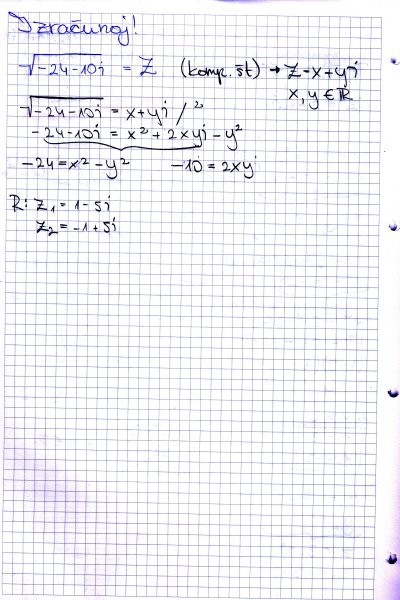 Izračunaj!
√-24-10i = Z (komp. št) → Z = x + yi
x, y ∈ ℝ
√-24-10i = x + yi / ²
-24-10i = x² + 2xyi - y²
-24 = x² - y² -10 = 2xy
R: Z₁ = 1 - 5i
Z₂ = -1 + 5i